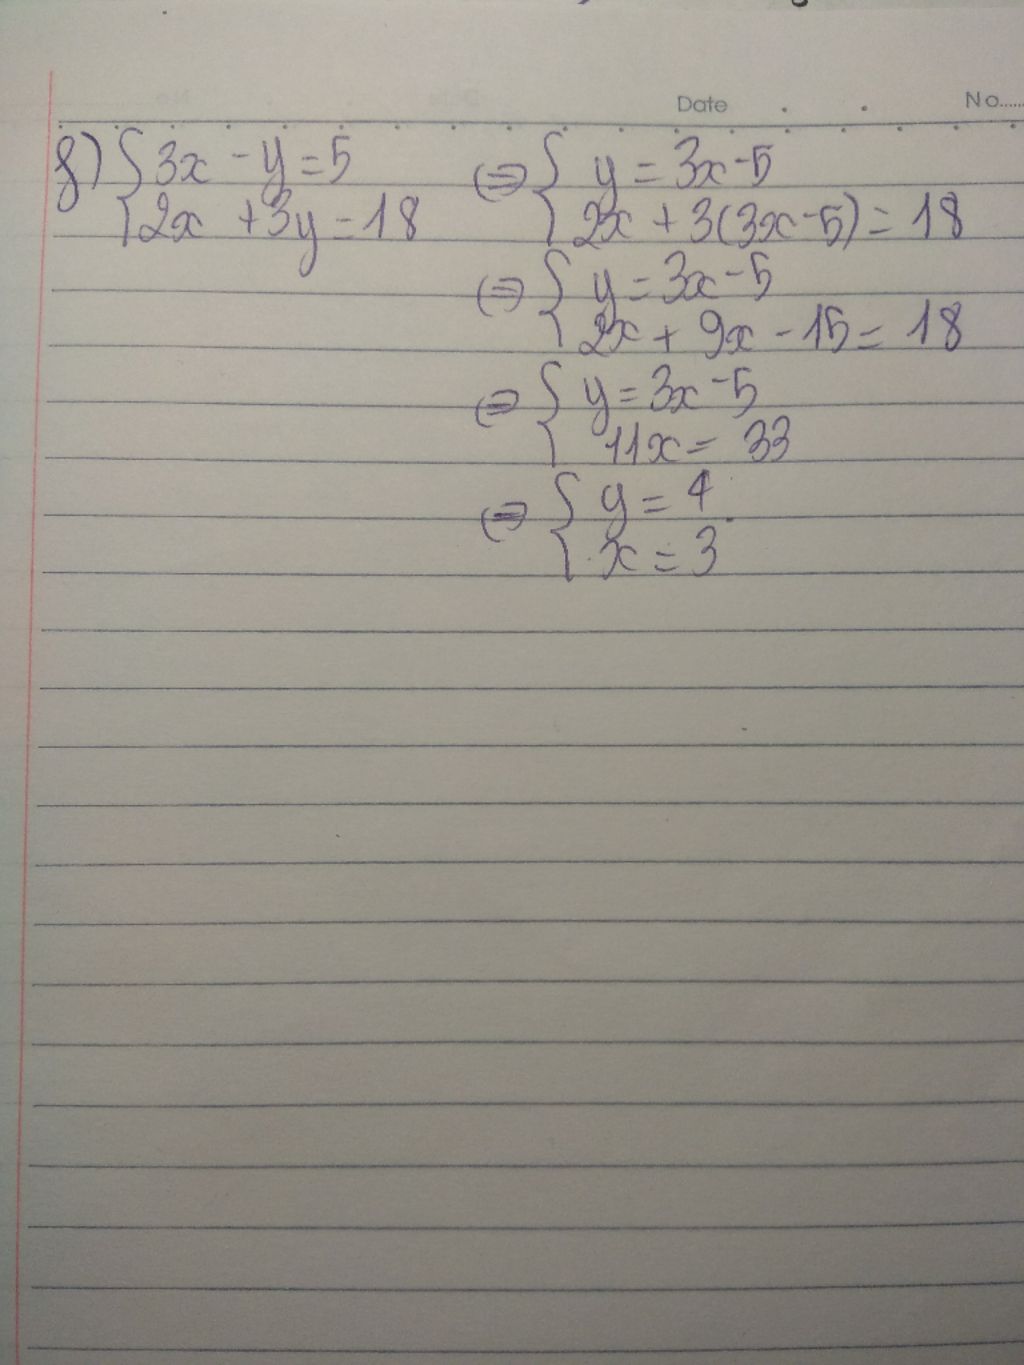 Date . . No.....
f) { 3x - y = 5 (=) { y = 3x - 5
{ 2x + 3y = 18 { 2x + 3(3x - 5) = 18
(=) { y = 3x - 5
{ 2x + 9x - 15 = 18
(=) { y = 3x - 5
{ 11x = 33
(=) { y = 4
{ x = 3